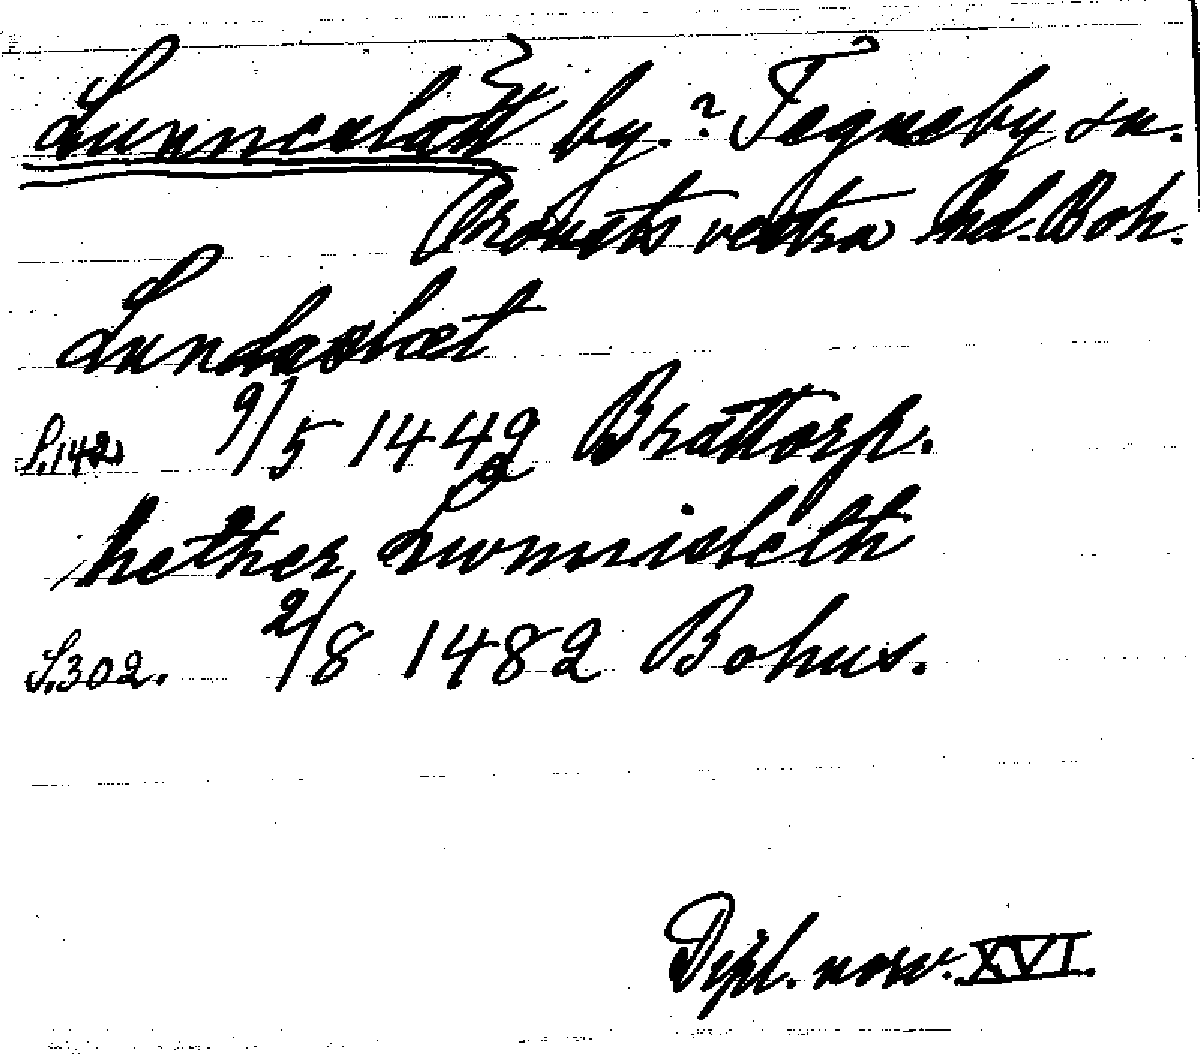 Lunneslätt by.? Tegneby sn.
Orousts västra hd. Boh.
Lundaslæt
S.142 9/5 1442 Brattorp.
hether Lwnnisleth
S.302. 2/8 1482 Bohus.
Dipl. norv. XVI.